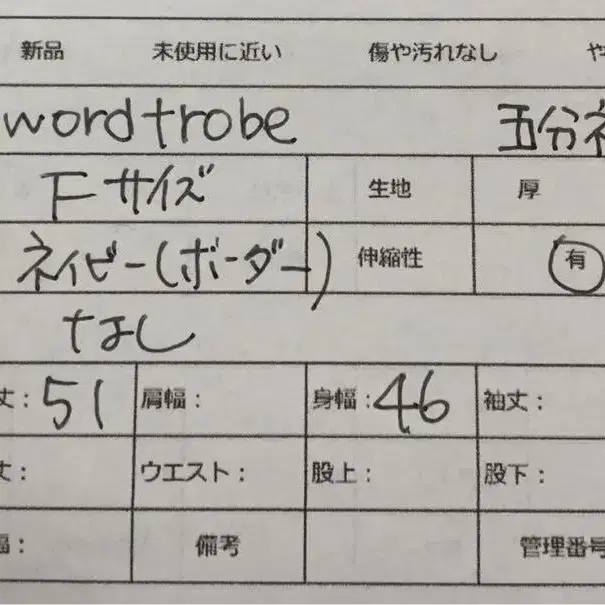 新品 未使用に近い 傷や汚れなし や
wordtrobe 五分袖
Fサイズ 生地 厚
ネイビー(ボーダー) 伸縮性 有
なし
丈: 51 肩幅: 身幅: 46 袖丈:
丈: ウエスト: 股上: 股下:
幅: 備考 管理番号